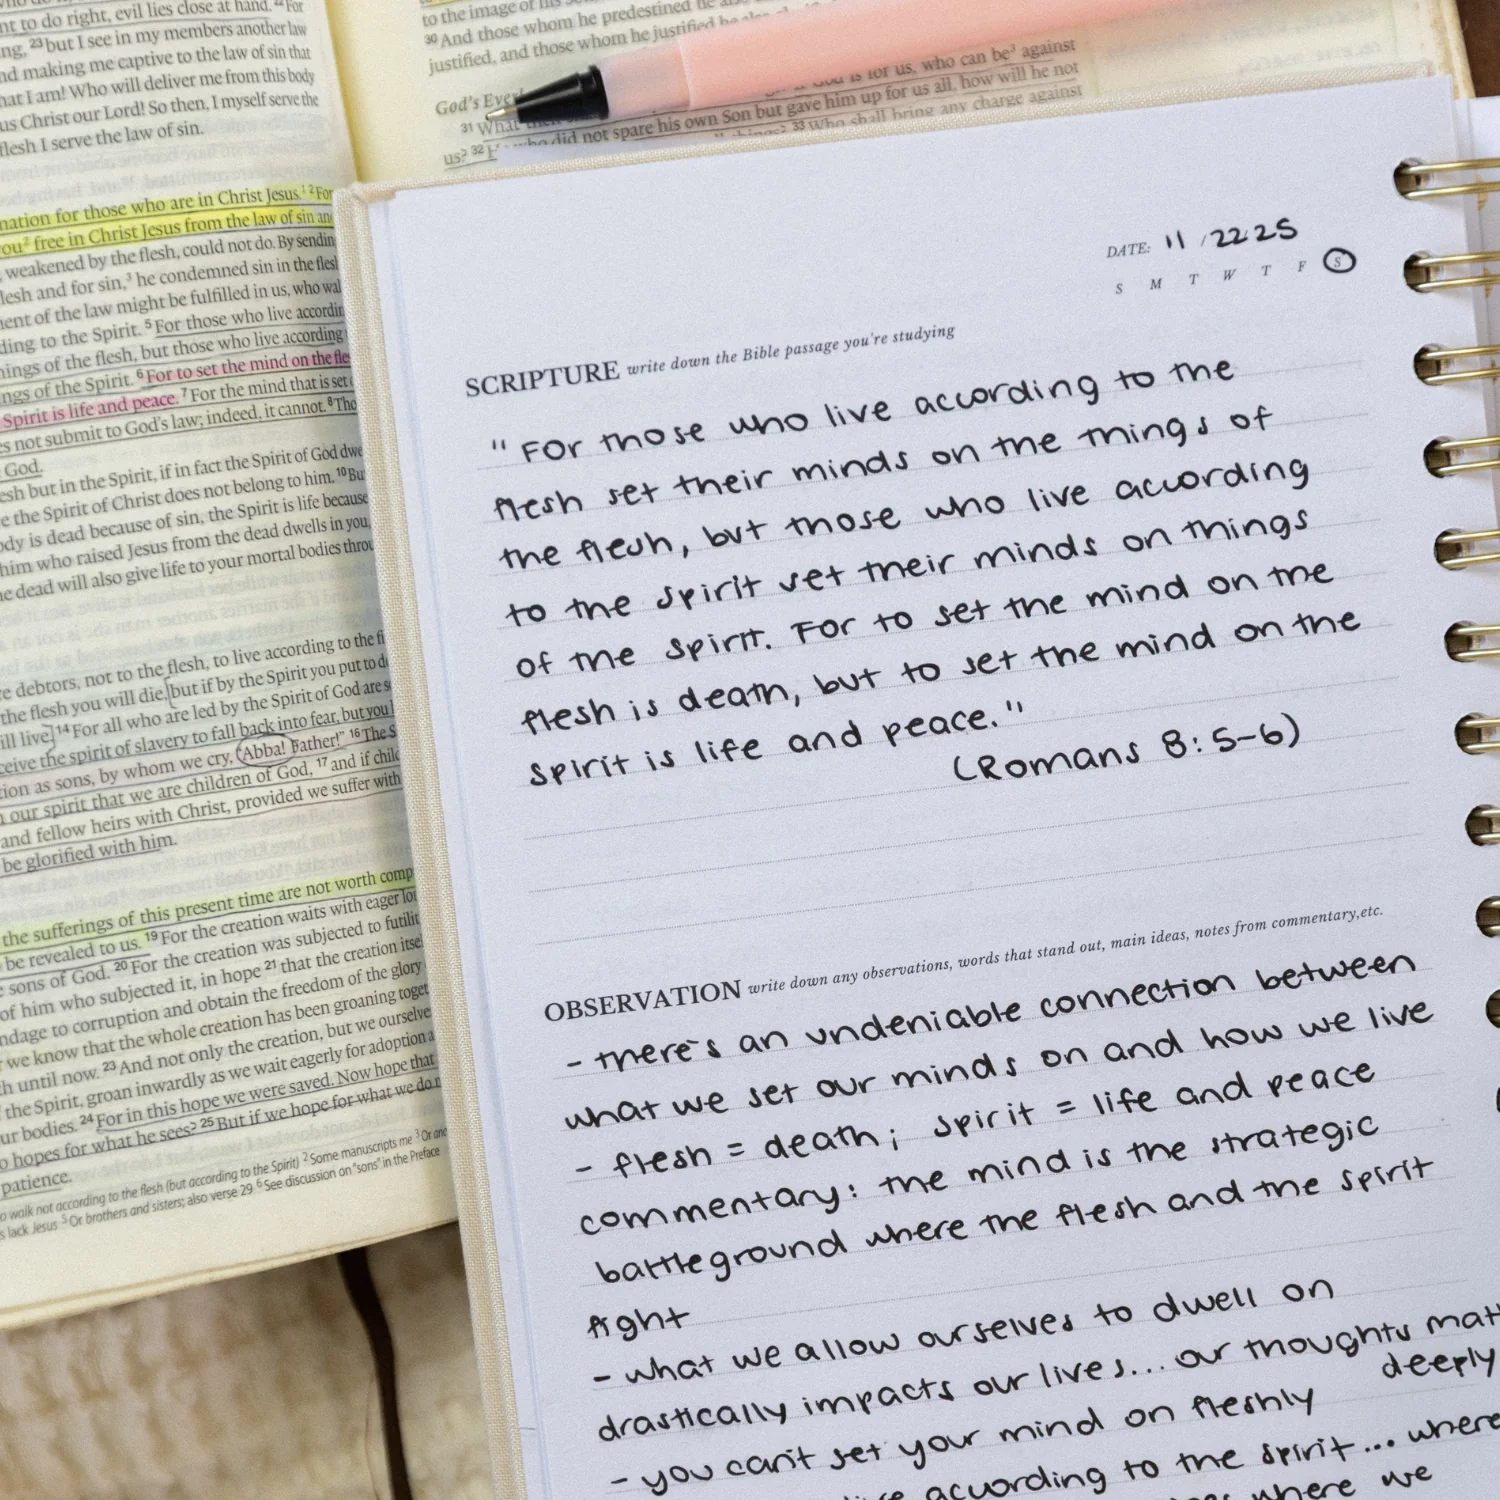 nt to do right, evil lies close at hand. 22 For
ng, 23 but I see in my members another law
nd making me captive to the law of sin that
hat I am! Who will deliver me from this body
us Christ our Lord! So then, I myself serve the
flesh I serve the law of sin.
nation for those who are in Christ Jesus. 1 2 For
you 2 free in Christ Jesus from the law of sin and
weakened by the flesh, could not do. By sending
lesh and for sin, 3 he condemned sin in the flesh
ment of the law might be fulfilled in us, who wal
ding to the Spirit. 5 For those who live accordin
hings of the flesh, but those who live according
ngs of the Spirit. 6 For to set the mind on the fle
Spirit is life and peace. 7 For the mind that is set
es not submit to God's law; indeed, it cannot. 8 Tho
God.
esh but in the Spirit, if in fact the Spirit of God dwe
e the Spirit of Christ does not belong to him. 10 Bu
ody is dead because of sin, the Spirit is life because
him who raised Jesus from the dead dwells in you,
he dead will also give life to your mortal bodies throu
re debtors, not to the flesh, to live according to the fl
the flesh you will die, but if by the Spirit you put to de
ill live. 14 For all who are led by the Spirit of God are s
ceive the spirit of slavery to fall back into fear, but you
tion as sons, by whom we cry, "Abba! Father!" 16 The S
h our spirit that we are children of God, 17 and if chil
and fellow heirs with Christ, provided we suffer with
be glorified with him.
the sufferings of this present time are not worth comp
be revealed to us. 19 For the creation waits with eager lo
e sons of God. 20 For the creation was subjected to futilit
of him who subjected it, in hope 21 that the creation itse
ndage to corruption and obtain the freedom of the glory
we know that the whole creation has been groaning toget
h until now. 23 And not only the creation, but we ourselve
the Spirit, groan inwardly as we wait eagerly for adoption a
ur bodies. 24 For in this hope we were saved. Now hope that
o hopes for what he sees? 25 But if we hope for what we do n
patience.
o walk not according to the flesh (but according to the Spirit) 2 Some manuscripts me 3 Or and
s lack Jesus 5 Or brothers and sisters; also verse 29 6 See discussion on "sons" in the Preface
to the image of his
30 And those whom he predestined he also
justified, and those whom he justified he also
God's Ever
31 What then
is for us, who can be 3 against
us? 32 H who did not spare his own Son but gave him up for us all, how will he not
33 Who shall bring any charge against
DATE: 11 / 22 25
S M T W T F S
SCRIPTURE write down the Bible passage you're studying
"For those who live according to the
flesh set their minds on the things of
the flesh, but those who live according
to the spirit set their minds on things
of the spirit. For to set the mind on the
flesh is death, but to set the mind on the
spirit is life and peace."
(Romans 8:5-6)
OBSERVATION write down any observations, words that stand out, main ideas, notes from commentary,etc.
- there's an undeniable connection between
what we set our minds on and how we live
- flesh = death; spirit = life and peace
commentary: the mind is the strategic
battleground where the flesh and the spirit
fight
- what we allow ourselves to dwell on
drastically impacts our lives... our thoughts matt
deeply
- you can't set your mind on fleshly
according to the spirit... where
where we